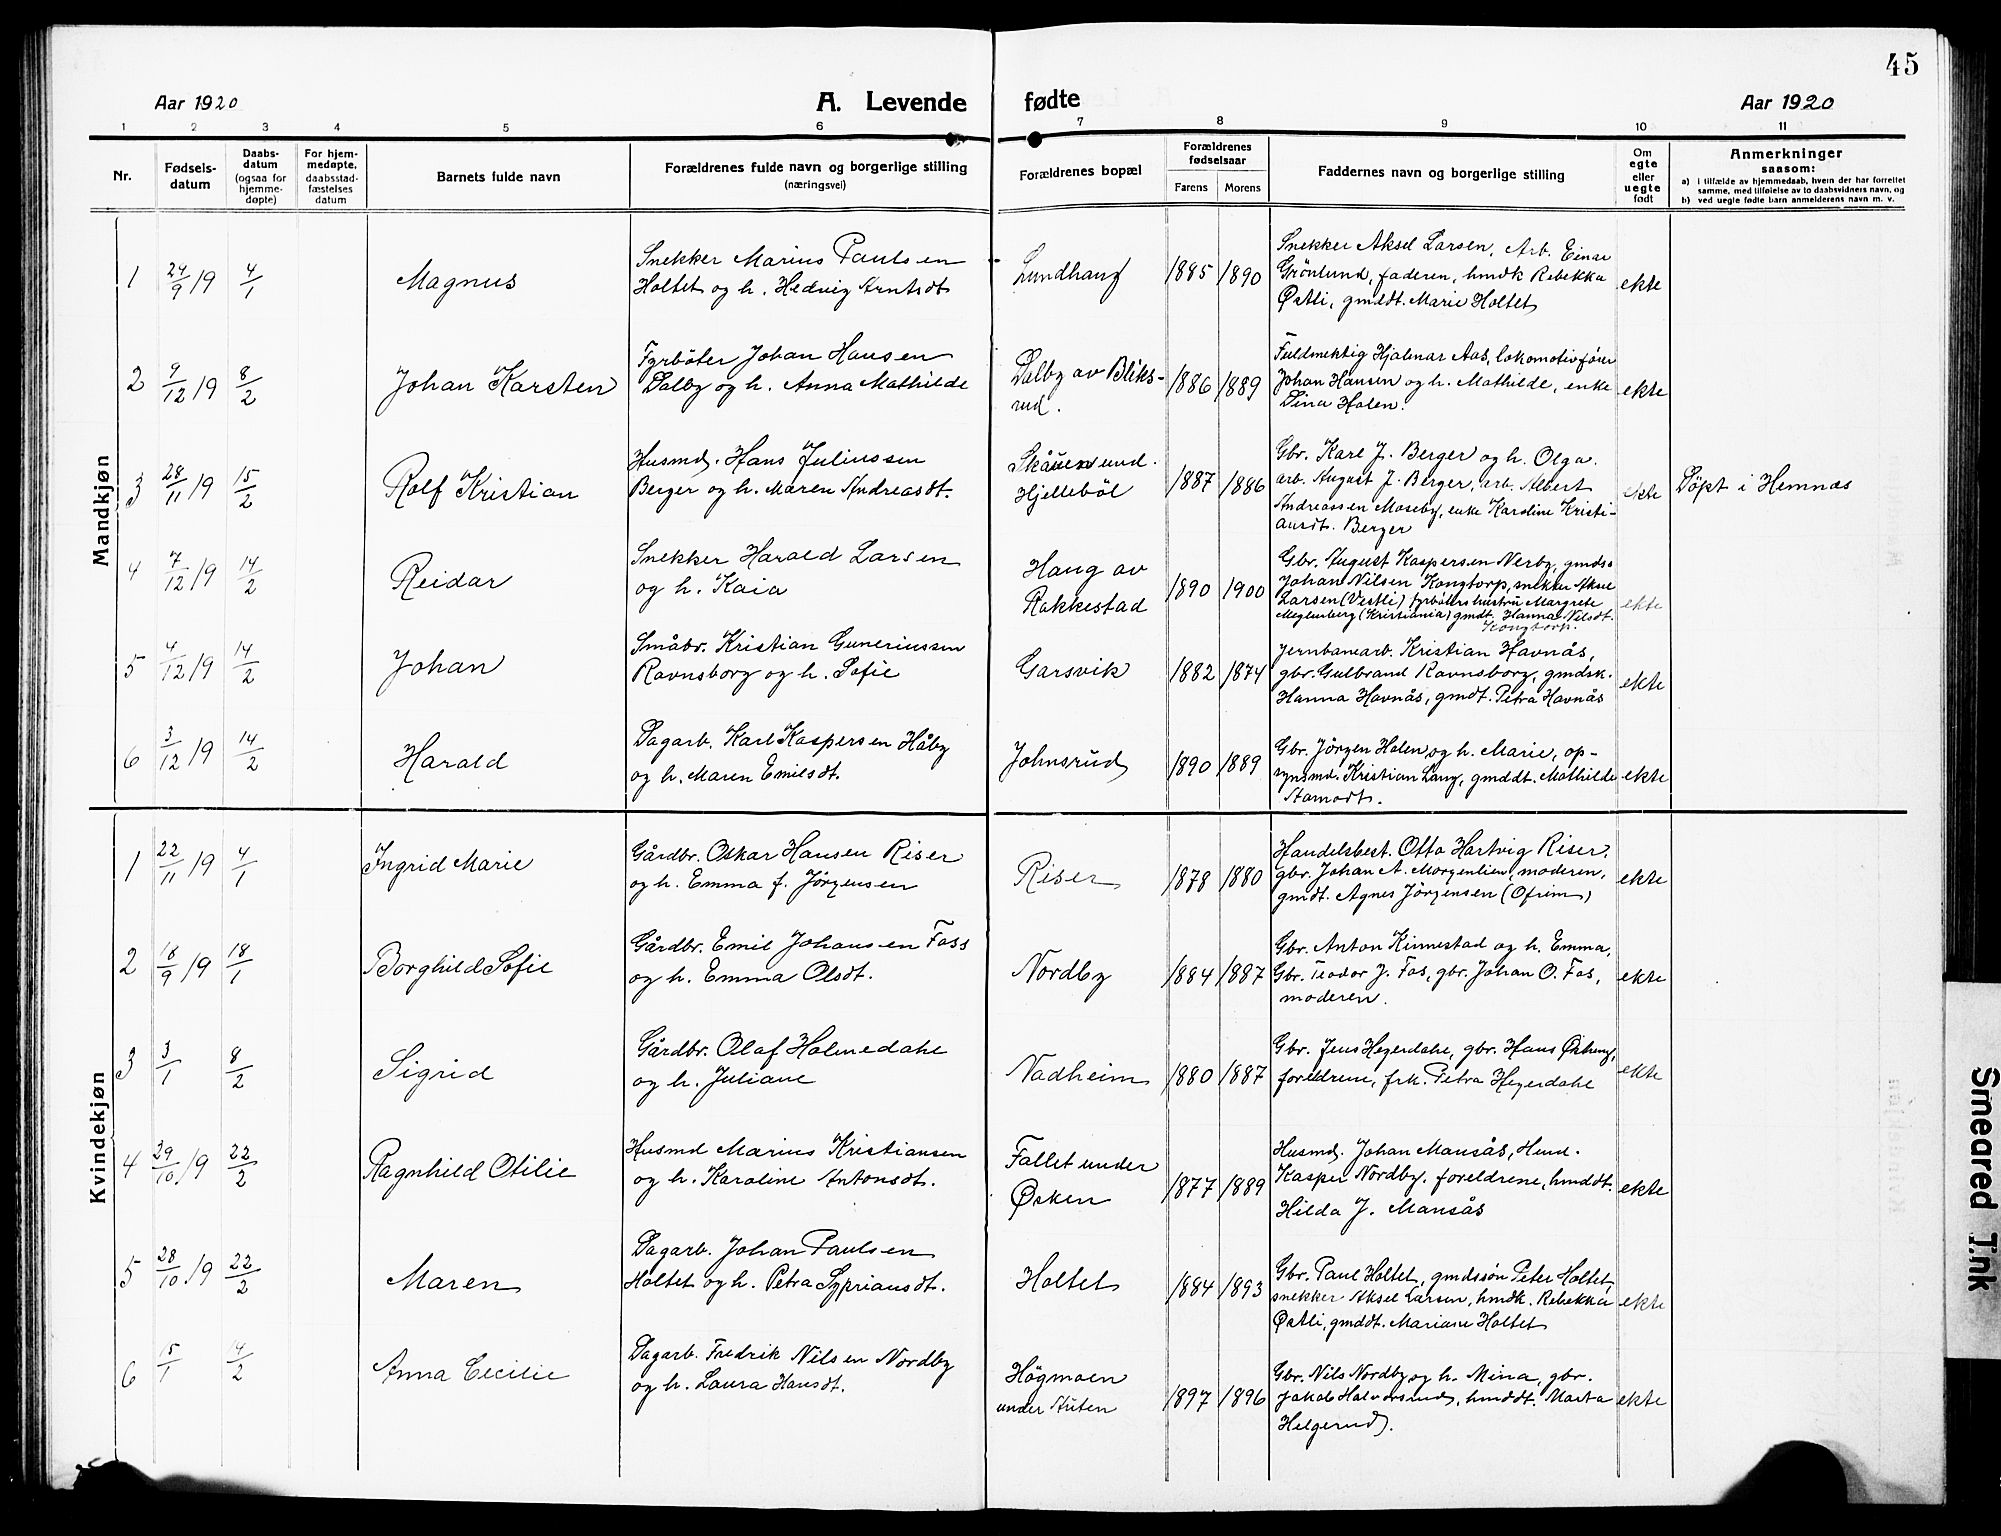 45
Aar 1920
A. Levende fødte
Aar 1920
1 2 3 4 5 6 7 8 9 10 11
Nr.
Fødsels-
datum
Daabs-
datum
(ogsaa for
hjemme-
døpte)
For hjem-
medøpte,
daabsstad-
fæstelses
datum
Barnets fulde navn
Forældrenes fulde navn og borgerlige stilling
(næringsvei)
Forældrenes bopæl
Forældrenes
fødselsaar
Farens Morens
Faddernes navn og borgerlige stilling
Om
egte
eller
uegte
født
Anmerkninger
saasom:
a) i tilfælde av hjemmedaab, hvem der har forrettet
samme, med tilføielse av to daabsvidners navn, og
b) ved uegte fødte barn anmelderens navn m. v.
Mandkjøn
1 24/9 19 4/1 Magnus
Snekker Marius Paulsen
Holtet og h. Hedvig Arntsdt
Lundhaug
1885 1890
Snekker Aksel Larsen, Arb. Einar
Grönlund, faderen, hmdk Rebekka
Østli, gmddt. Marie Holtet
ekte
2 9/12 19 8/2 Johan Karsten
Fyrböter Johan Hansen
Dalby og h. Anna Mathilde
Dalby av Bliks-
rud.
1886 1889
Fuldmektig Hjalmar Aas, lokomotivförer
Johan Hansen og h. Mathilde, enke
Dina Holen.
ekte
3 28/11 19 15/2 Rolf Kristian
Husmd. Hans Juliussen
Berger og h. Maren Andreasdt.
Skåuen und.
Hjelleböl
1887 1886
Gbr. Karl J. Berger og h. Olga.
arb. August J. Berger, arb. Albert
Andreassen Moseby, enke Karoline Kristi-
ansdt. Berger
ekte
Döpt i Hemnæs
4 7/12 19 14/2 Reidar
Snekker Harald Larsen
og h. Kaia
Haug av
Rakkestad
1890 1900
Gbr. August Kaspersen Nerby, gmdss
Johan Nilsen Kongtorp, snekker Aksel
Larsen (Vestli) fyrböters hustru Margrete
(Kristiania) gmdt. Hanna Nilsdt.
Kongtorp.
ekte
5 4/12 19 14/2 Johan
Småbr. Kristian Guneriussen
Ravnsborg og h. Sofie
Garsvik
1882 1874
Jernbanearb. Kristian Havnås,
gbr. Gulbrand Ravnsborg, gmdsk.
Hanna Havnås, gmdt. Petra Havnås
ekte
6 3/12 19 14/2 Harald
Dagarb. Karl Kaspersen Håby
og h. Maren Emilsdt.
Johnsrud
1890 1889
Gbr. Jörgen Holen og h. Marie, op-
synsmd. Kristian Lang, gmddt. Mathilde
ekte
Kvindekjøn
1 22/11 19 4/1 Ingrid Marie
Gårdbr. Oskar Hansen Riser
og h. Emma f. Jörgensen
Riser
1878 1880
Handelsbest. Otto Hartvig Riser,
gbr. Johan A. Morgenlien, moderen,
gmdt. Agnes Jörgensen (Ofrim)
ekte
2 18/9 19 18/1 Borghild Sofie
Gårdbr. Emil Johansen Foss
og h. Emma Olsdt.
Nordby
1884 1887
Gbr. Anton Kinnestad og h. Emma,
Gbr. Teodor J. Fos, gbr. Johan O. Fos,
moderen.
ekte
3 3/1 8/2 Sigrid
Gårdbr. Olaf Holmedahl
og h. Juliane
Nadheim
1880 1887
Gbr. Jens Hegerdahl, gbr. Hans
foreldrene, frk. Petra Hegerdahl
ekte
4 29/10 19 22/2 Ragnhild Otilie
Husmd Marius Kristiansen
og h. Karoline Antonsdt.
Fallet under
Øsken
1877 1889
Husmd. Johan Mansås, Husmd.
Kasper Nordby. foreldrene, hmddt.
Hilda J. Mansås
ekte
5 28/10 19 22/2 Maren
Dagarb. Johan Paulsen
Holtet og h. Petra Sypriansdt.
Holtet
1884 1893
Gbr. Paul Holtet, gmdssön Peter Holtet
snekker Aksel Larsen, hmdk. Rebekka
Østli, gmddt. Mariane Holtet
ekte
6 15/1 14/2 Anna Cecilie
Dagarb. Fredrik Nilsen Nordby
og h. Laura Hansdt.
Högmoen
under Auten
1897 1896
Gbr. Nils Nordby og h. Mina, gbr.
Jakob Halvorsrud, hmddt. Marta
Helgerud.
ekte
Smeared Ink